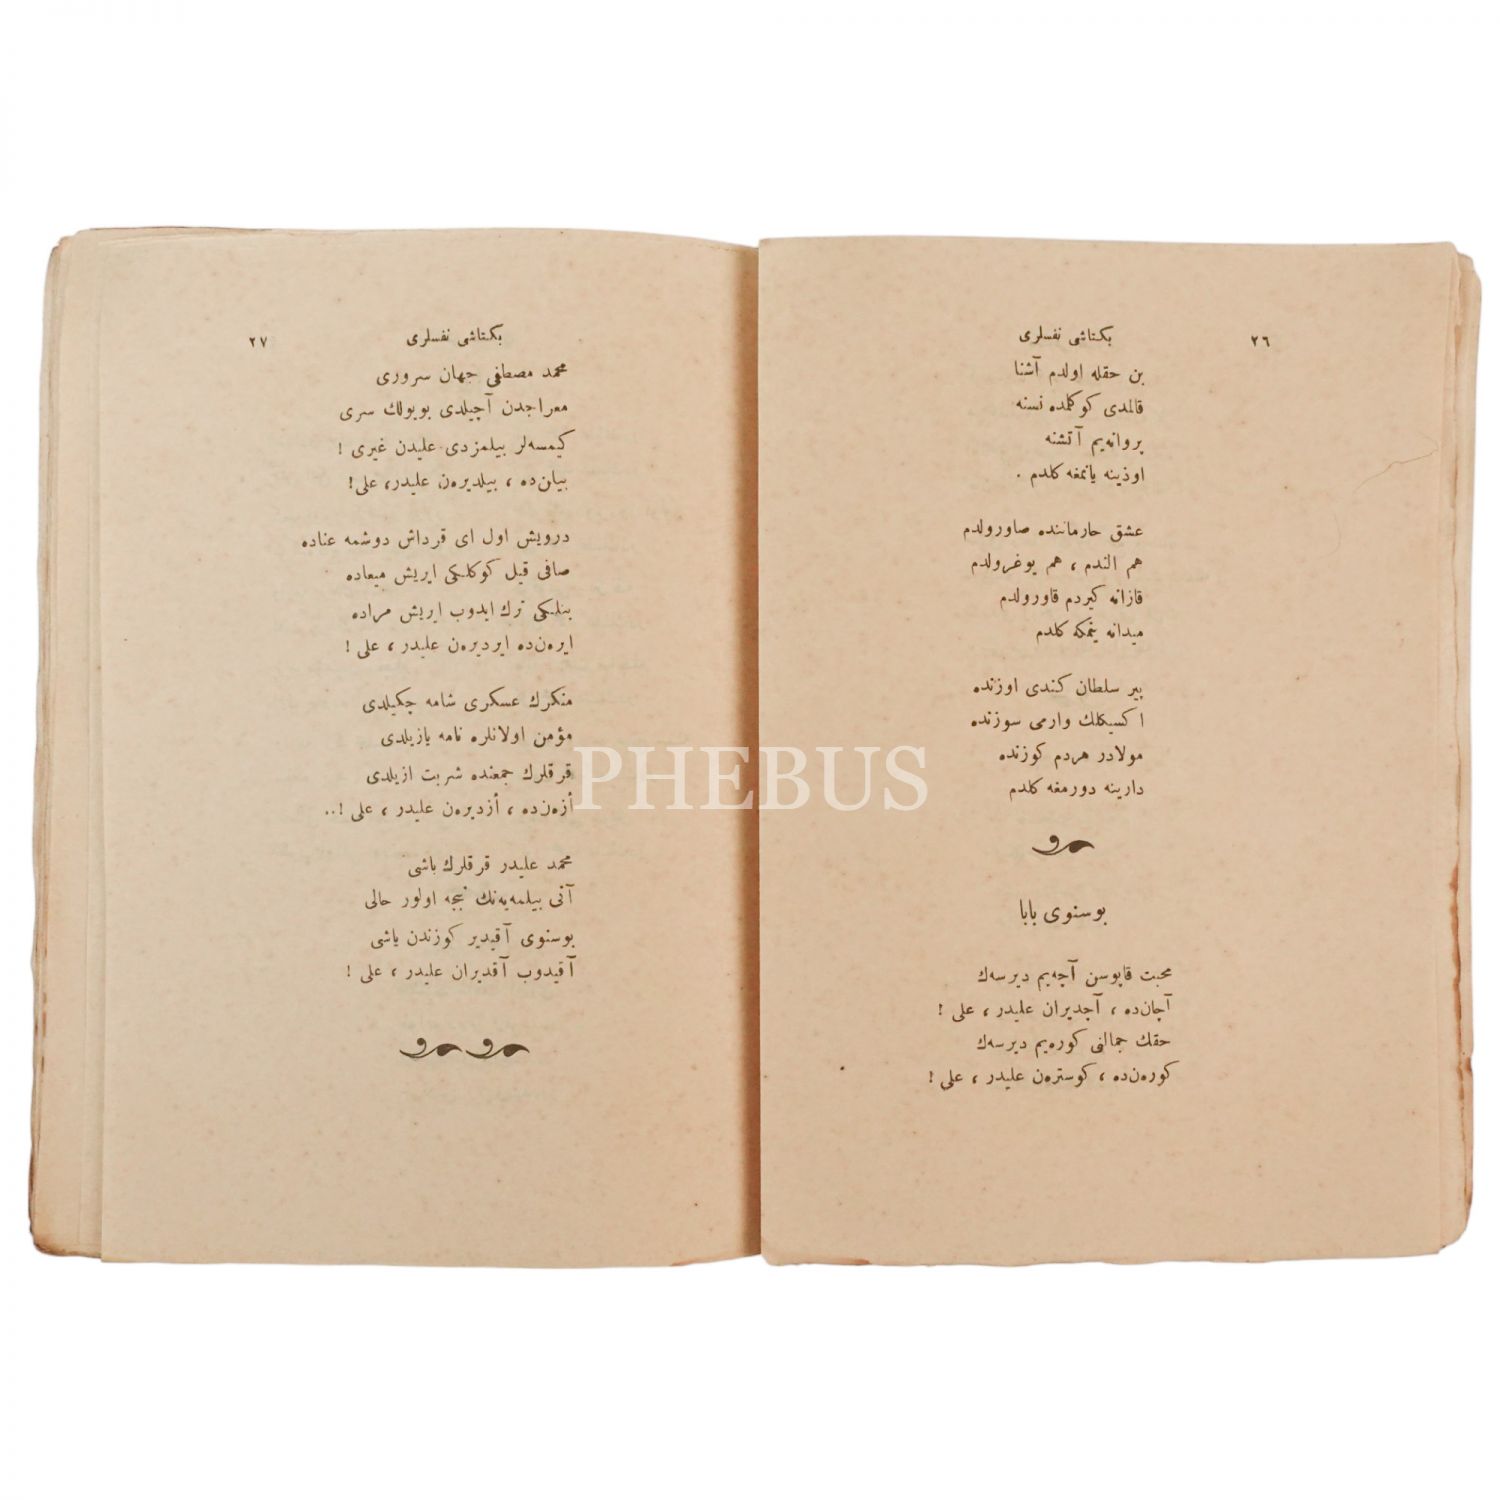 ٢٦
بكتاشی نفسلری
بن حقله اولدم آشنا
قالمدی كوكلمده نسنه
پروانه‌یم آتشنه
اوذینه یانمغه كلدم .
عشق حارماننده صاورولدم
هم الندم ، هم یوغرولدم
قازانه كیردم قاورولدم
میدانه ینمكه كلدم
پیر سلطان كندی اوزنده
اكسیكلك وارمی سوزنده
مولادر هردم كوزنده
دارینه دورمغه كلدم
بوسنوی بابا
محبت قاپوسن آچه‌یم دیرسه‌ك
آچان‌ده ، آچدیران علیدر ، علی !
حقك جمالنی كوره‌یم دیرسه‌ك
كوره‌ن‌ده ، كوستره‌ن علیدر ، علی !
٢٧
بكتاشی نفسلری
محمد مصطفی جهان سروری
معراجدن آچیلدی بویولك سری
كیمسه‌لر بیلمزدی علیدن غیری !
بیان‌ده ، بیلدیره‌ن علیدر، علی!
درویش اول ای قرداش دوشمه عناده
صافی قیل كوكلكی ایریش میعاده
بنلكی ترك ایدوب ایریش مراده
ایره‌ن‌ده ایردیره‌ن علیدر ، علی !
منكرك عسكری شامه چكیلدی
مؤمن اولانلره نامه یازیلدی
قرقلرك جمعنده شربت ازیلدی
أزه‌ن‌ده ، أزدیره‌ن علیدر ، علی !..
محمد علیدر قرقلرك باشی
آنی بیلمه‌یه‌نك نیجه اولور حالی
بوسنوی آقیدیر كوزندن یاشی
آقیدوب آقدیران علیدر ، علی !
PHEBUS